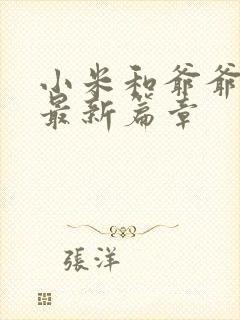 小米和爺爺
最新篇章
張洋